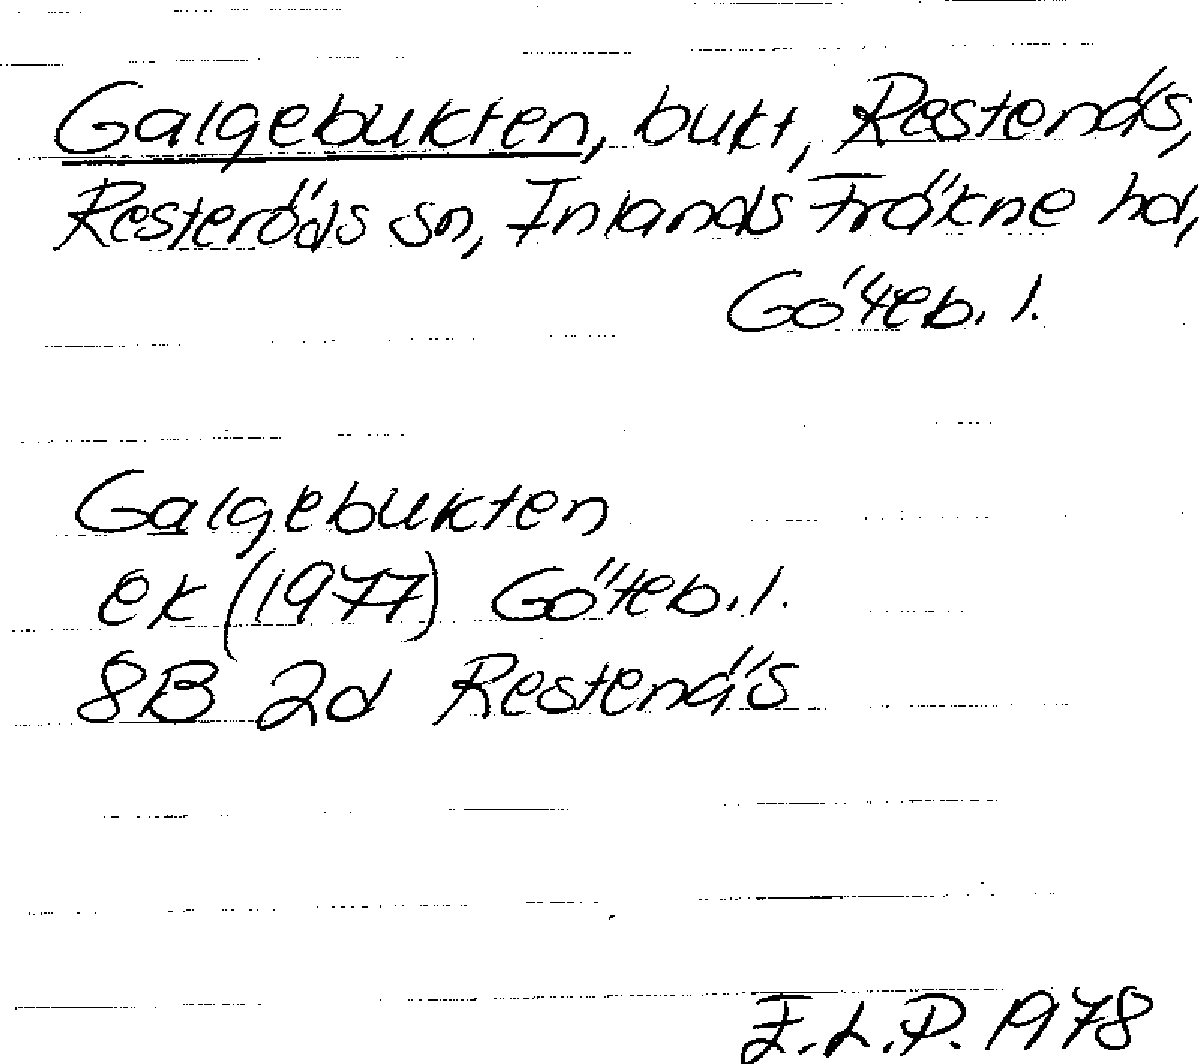 Galgebukten, bukt, Restenäs,
Resteröds sn, Inlands Fräkne hd,
Göteb. l.
Galgebukten
ek (1977) Göteb. l.
8B 2d Restenäs
F.L.P. 1978